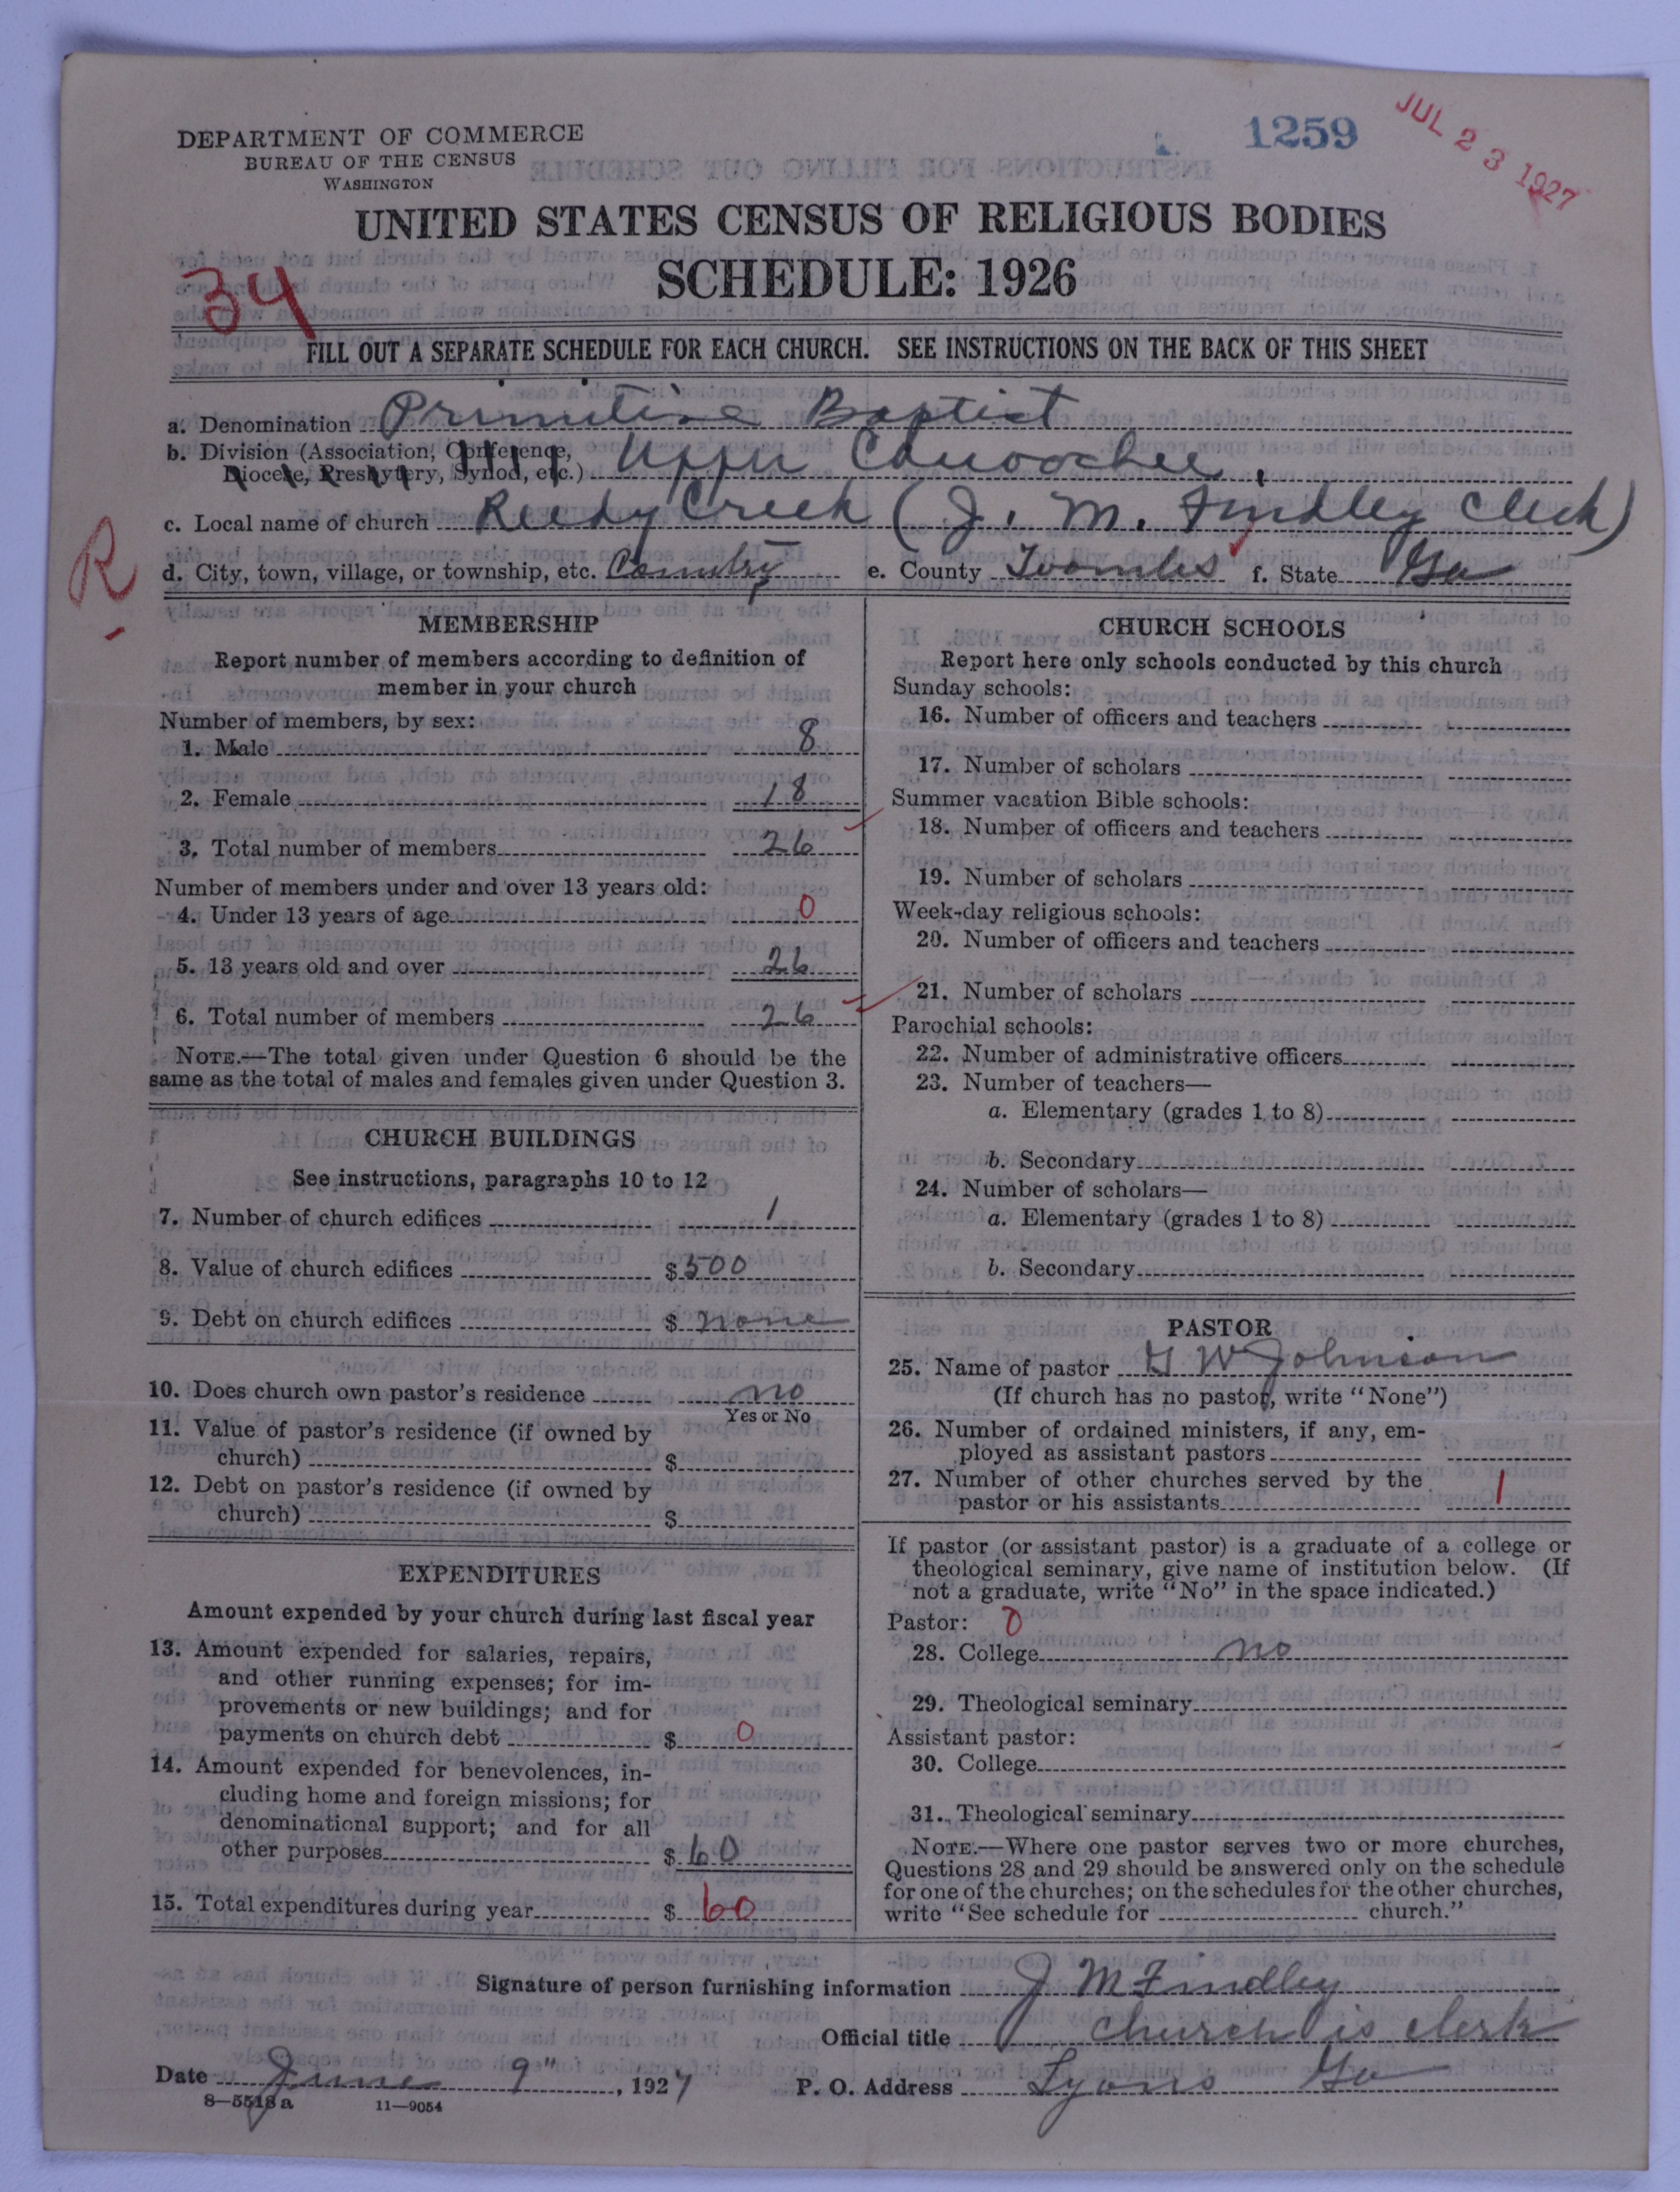 DEPARTMENT OF COMMERCE
BUREAU OF THE CENSUS
WASHINGTON
1259
JUL 23 1927
UNITED STATES CENSUS OF RELIGIOUS BODIES
SCHEDULE: 1926
34
FILL OUT A SEPARATE SCHEDULE FOR EACH CHURCH. SEE INSTRUCTIONS ON THE BACK OF THIS SHEET
a. Denomination Primitive Baptist
b. Division (Association, Conference,
Diocese, Presbytery, Synod, etc.) Upper Canoochee,
c. Local name of church Reedy Creek (J. M. Findley Clerk)
R
d. City, town, village, or township, etc. Country e. County Toombs f. State Ga
MEMBERSHIP
Report number of members according to definition of
member in your church
Number of members, by sex:
1. Male 8
2. Female 18
3. Total number of members 26
Number of members under and over 13 years old:
4. Under 13 years of age 0
5. 13 years old and over 26
6. Total number of members 26
NOTE.—The total given under Question 6 should be the
same as the total of males and females given under Question 3.
CHURCH BUILDINGS
See instructions, paragraphs 10 to 12
7. Number of church edifices 1
8. Value of church edifices $ 500
9. Debt on church edifices $ none
10. Does church own pastor's residence no
Yes or No
11. Value of pastor's residence (if owned by
church) $
12. Debt on pastor's residence (if owned by
church) $
EXPENDITURES
Amount expended by your church during last fiscal year
13. Amount expended for salaries, repairs,
and other running expenses; for im-
provements or new buildings; and for
payments on church debt $ 0
14. Amount expended for benevolences, in-
cluding home and foreign missions; for
denominational support; and for all
other purposes $ 60
15. Total expenditures during year $ 60
CHURCH SCHOOLS
Report here only schools conducted by this church
Sunday schools:
16. Number of officers and teachers
17. Number of scholars
Summer vacation Bible schools:
18. Number of officers and teachers
19. Number of scholars
Week-day religious schools:
20. Number of officers and teachers
21. Number of scholars
Parochial schools:
22. Number of administrative officers
23. Number of teachers—
a. Elementary (grades 1 to 8)
b. Secondary
24. Number of scholars—
a. Elementary (grades 1 to 8)
b. Secondary
PASTOR
25. Name of pastor G W Johnson
(If church has no pastor, write "None")
26. Number of ordained ministers, if any, em-
ployed as assistant pastors
27. Number of other churches served by the
pastor or his assistants 1
If pastor (or assistant pastor) is a graduate of a college or
theological seminary, give name of institution below. (If
not a graduate, write "No" in the space indicated.)
Pastor: 0
28. College no
29. Theological seminary
Assistant pastor:
30. College
31. Theological seminary
NOTE.—Where one pastor serves two or more churches,
Questions 28 and 29 should be answered only on the schedule
for one of the churches; on the schedules for the other churches,
write "See schedule for church."
Signature of person furnishing information J M Findley
Official title church is clerk
Date June 9", 1927 P. O. Address Lyons Ga
8—5518 a 11—9054